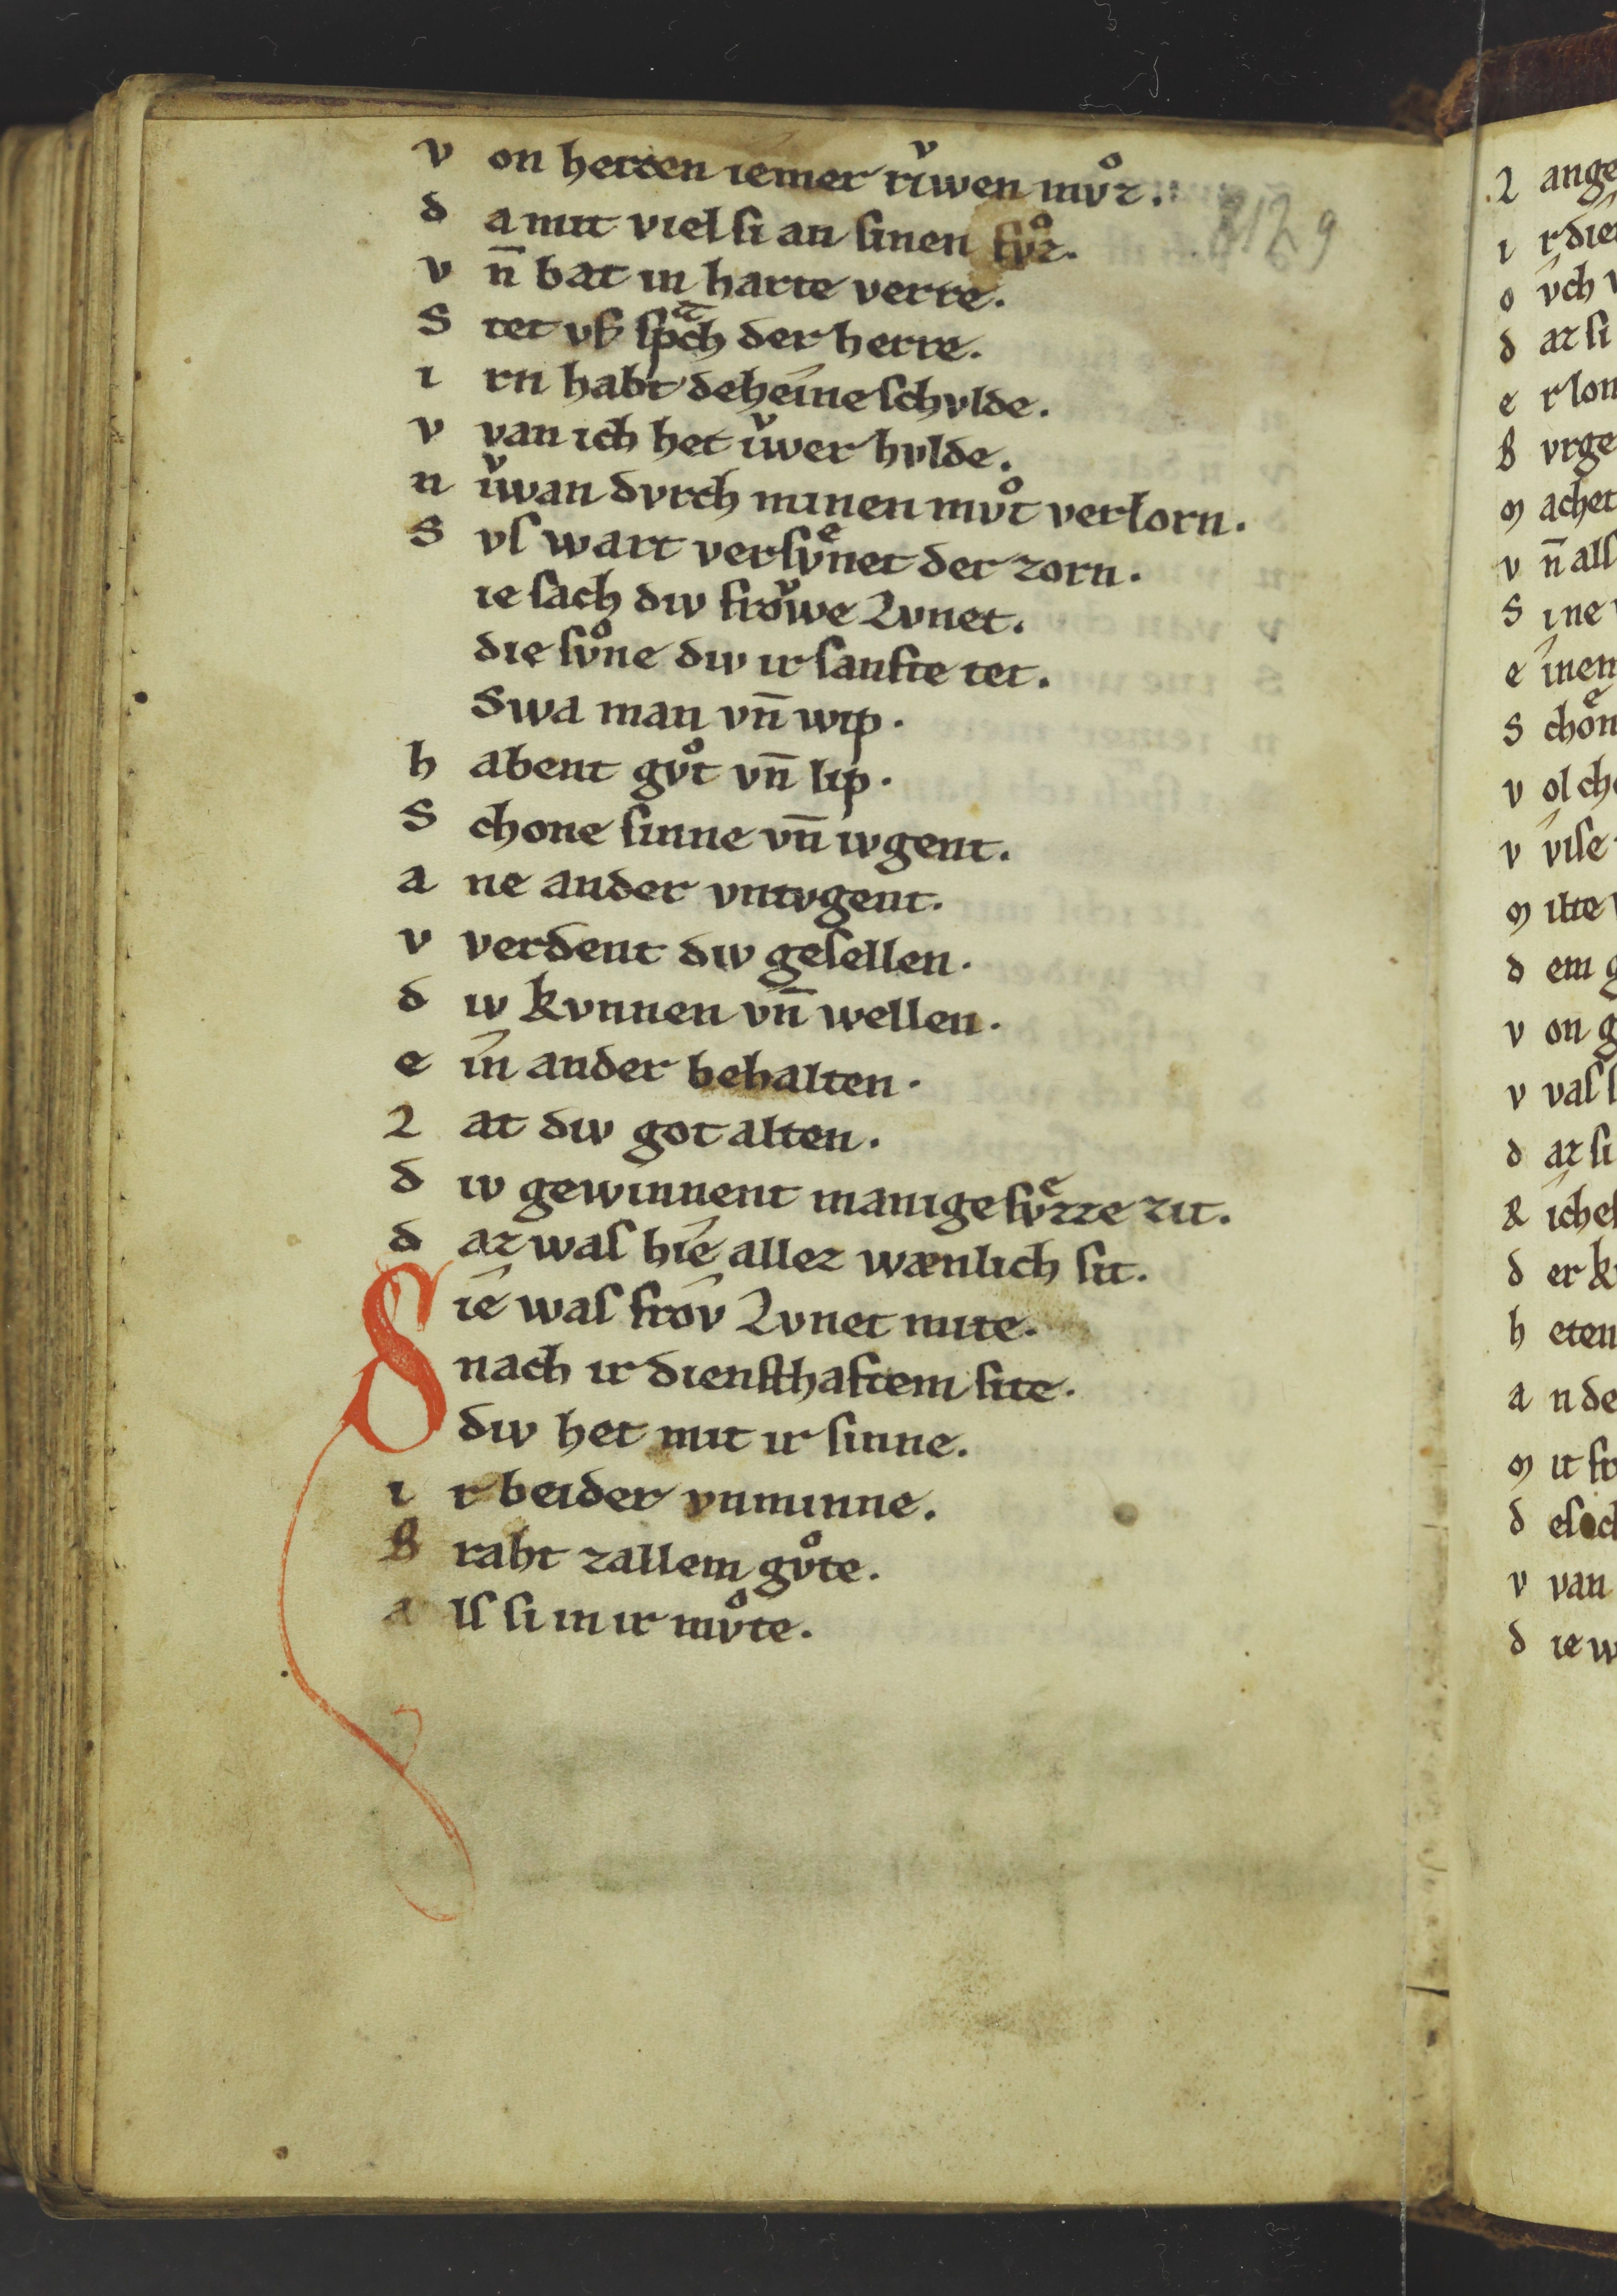 v on hercen iemer riͮwen mvͦz.
8129
d a mit viel si an sinen fvͦz.
v n̄ bat in harte verre.
S tet vf spͣch der herre.
i rn habt deheine schvlde.
v van ich het iͮwer hvlde.
n iͮwan dvrch minen mvͦt verlorn.
S vſ wart verſvͤnet der zorn.
ie ſach div froͮwe Lvnet.
die ſvͦne div ir ſanfte tet.
Swa man vn̄ wip.
h abent gvͦt vn̄ lip.
S chone ſinne vn̄ ivgent.
a ne ander vntvgent.
v verdent div geſellen.
d iv kvnnen vn̄ wellen.
e in ander behalten.
L at div got alten.
d iv gewinnent manige ſvͤzze zit.
d az waſ hie allez wænlich ſit.
S ie waſ frov Lvnet mite.
nach ir dienſthaftem ſite.
div het mit ir ſinne.
i r beider vnminne.
B raht zallem gvͦte.
a lſ ſi in ir mvͦte.
L ange
i r die
o vch v
d az ſi
e r lon
B vrge
M achet
v n̄ alſ
S ine
e inen
S choͤn
v ol ch
v viſe
M ilte
d em g
v on g
v vaſ ſ
d az ſi
R iche
d er k
h eten
a n de
M it fr
d eſ
v van
d ie w